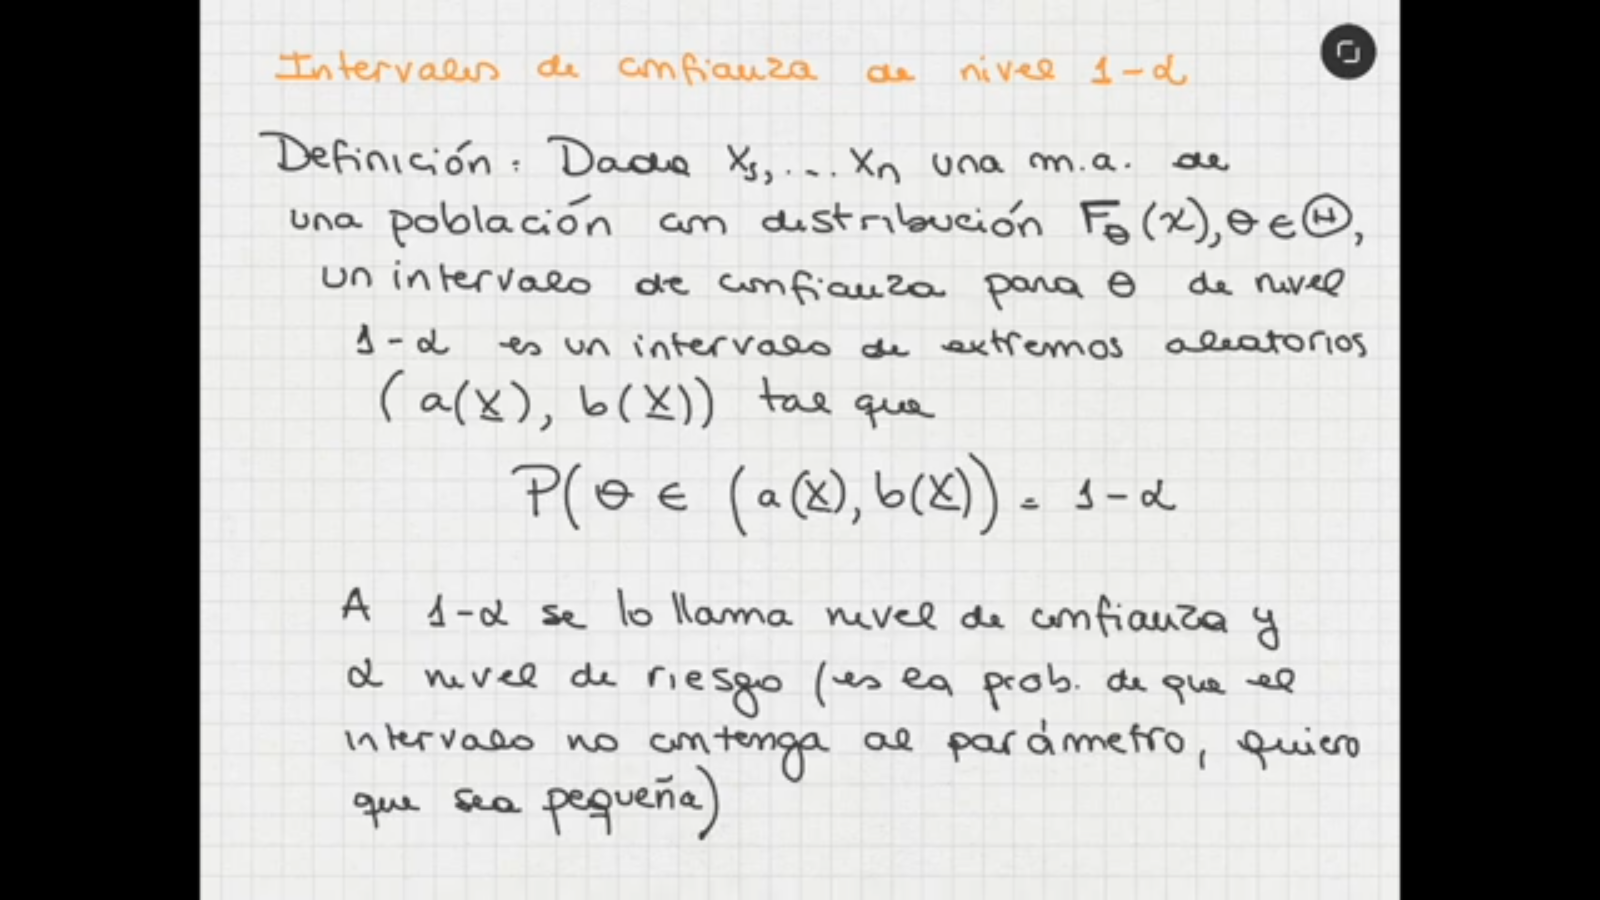 Intervalos de confianza de nivel 1-α
Definición: Dada X₁,... Xₙ una m.a. de
una población con distribución F_θ(x), θ ∈ Θ,
un intervalo de confianza para θ de nivel
1-α es un intervalo de extremos aleatorios
(a(X̲), b(X̲)) tal que
P(θ ∈ (a(X̲), b(X̲)) = 1-α
A 1-α se lo llama nivel de confianza y
α nivel de riesgo (es la prob. de que el
intervalo no contenga al parámetro, quiero
que sea pequeña)